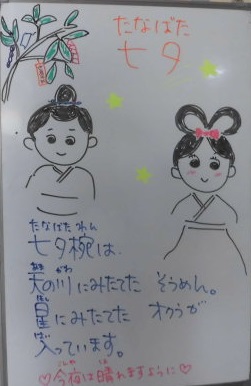 たなばた
七夕
たなばた わん
七夕椀は、
あま がわ
天の川にみたてた そうめん。
ほし
星にみたてた オクラが
はい
入っています。
こんや は
♡今夜は晴れますように♡